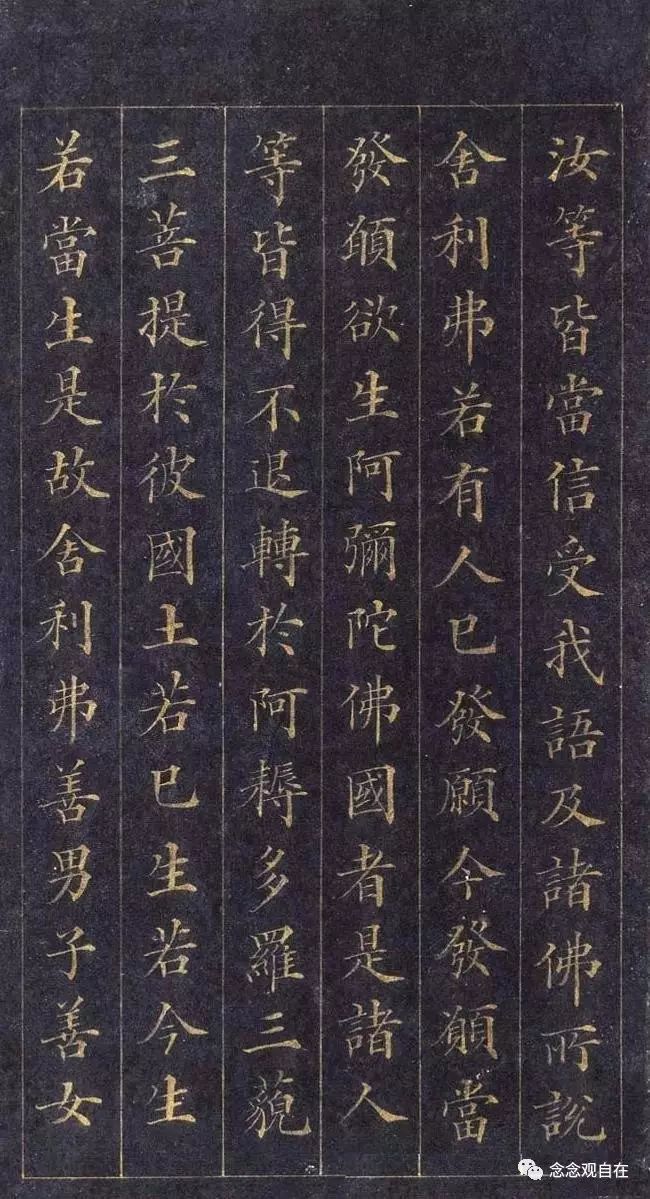 汝等皆當信受我語及諸佛所說
舍利弗若有人已發願今發願當
發願欲生阿彌陀佛國者是諸人
等皆得不退轉於阿耨多羅三藐
三菩提於彼國土若已生若今生
若當生是故舍利弗善男子善女
念念观自在